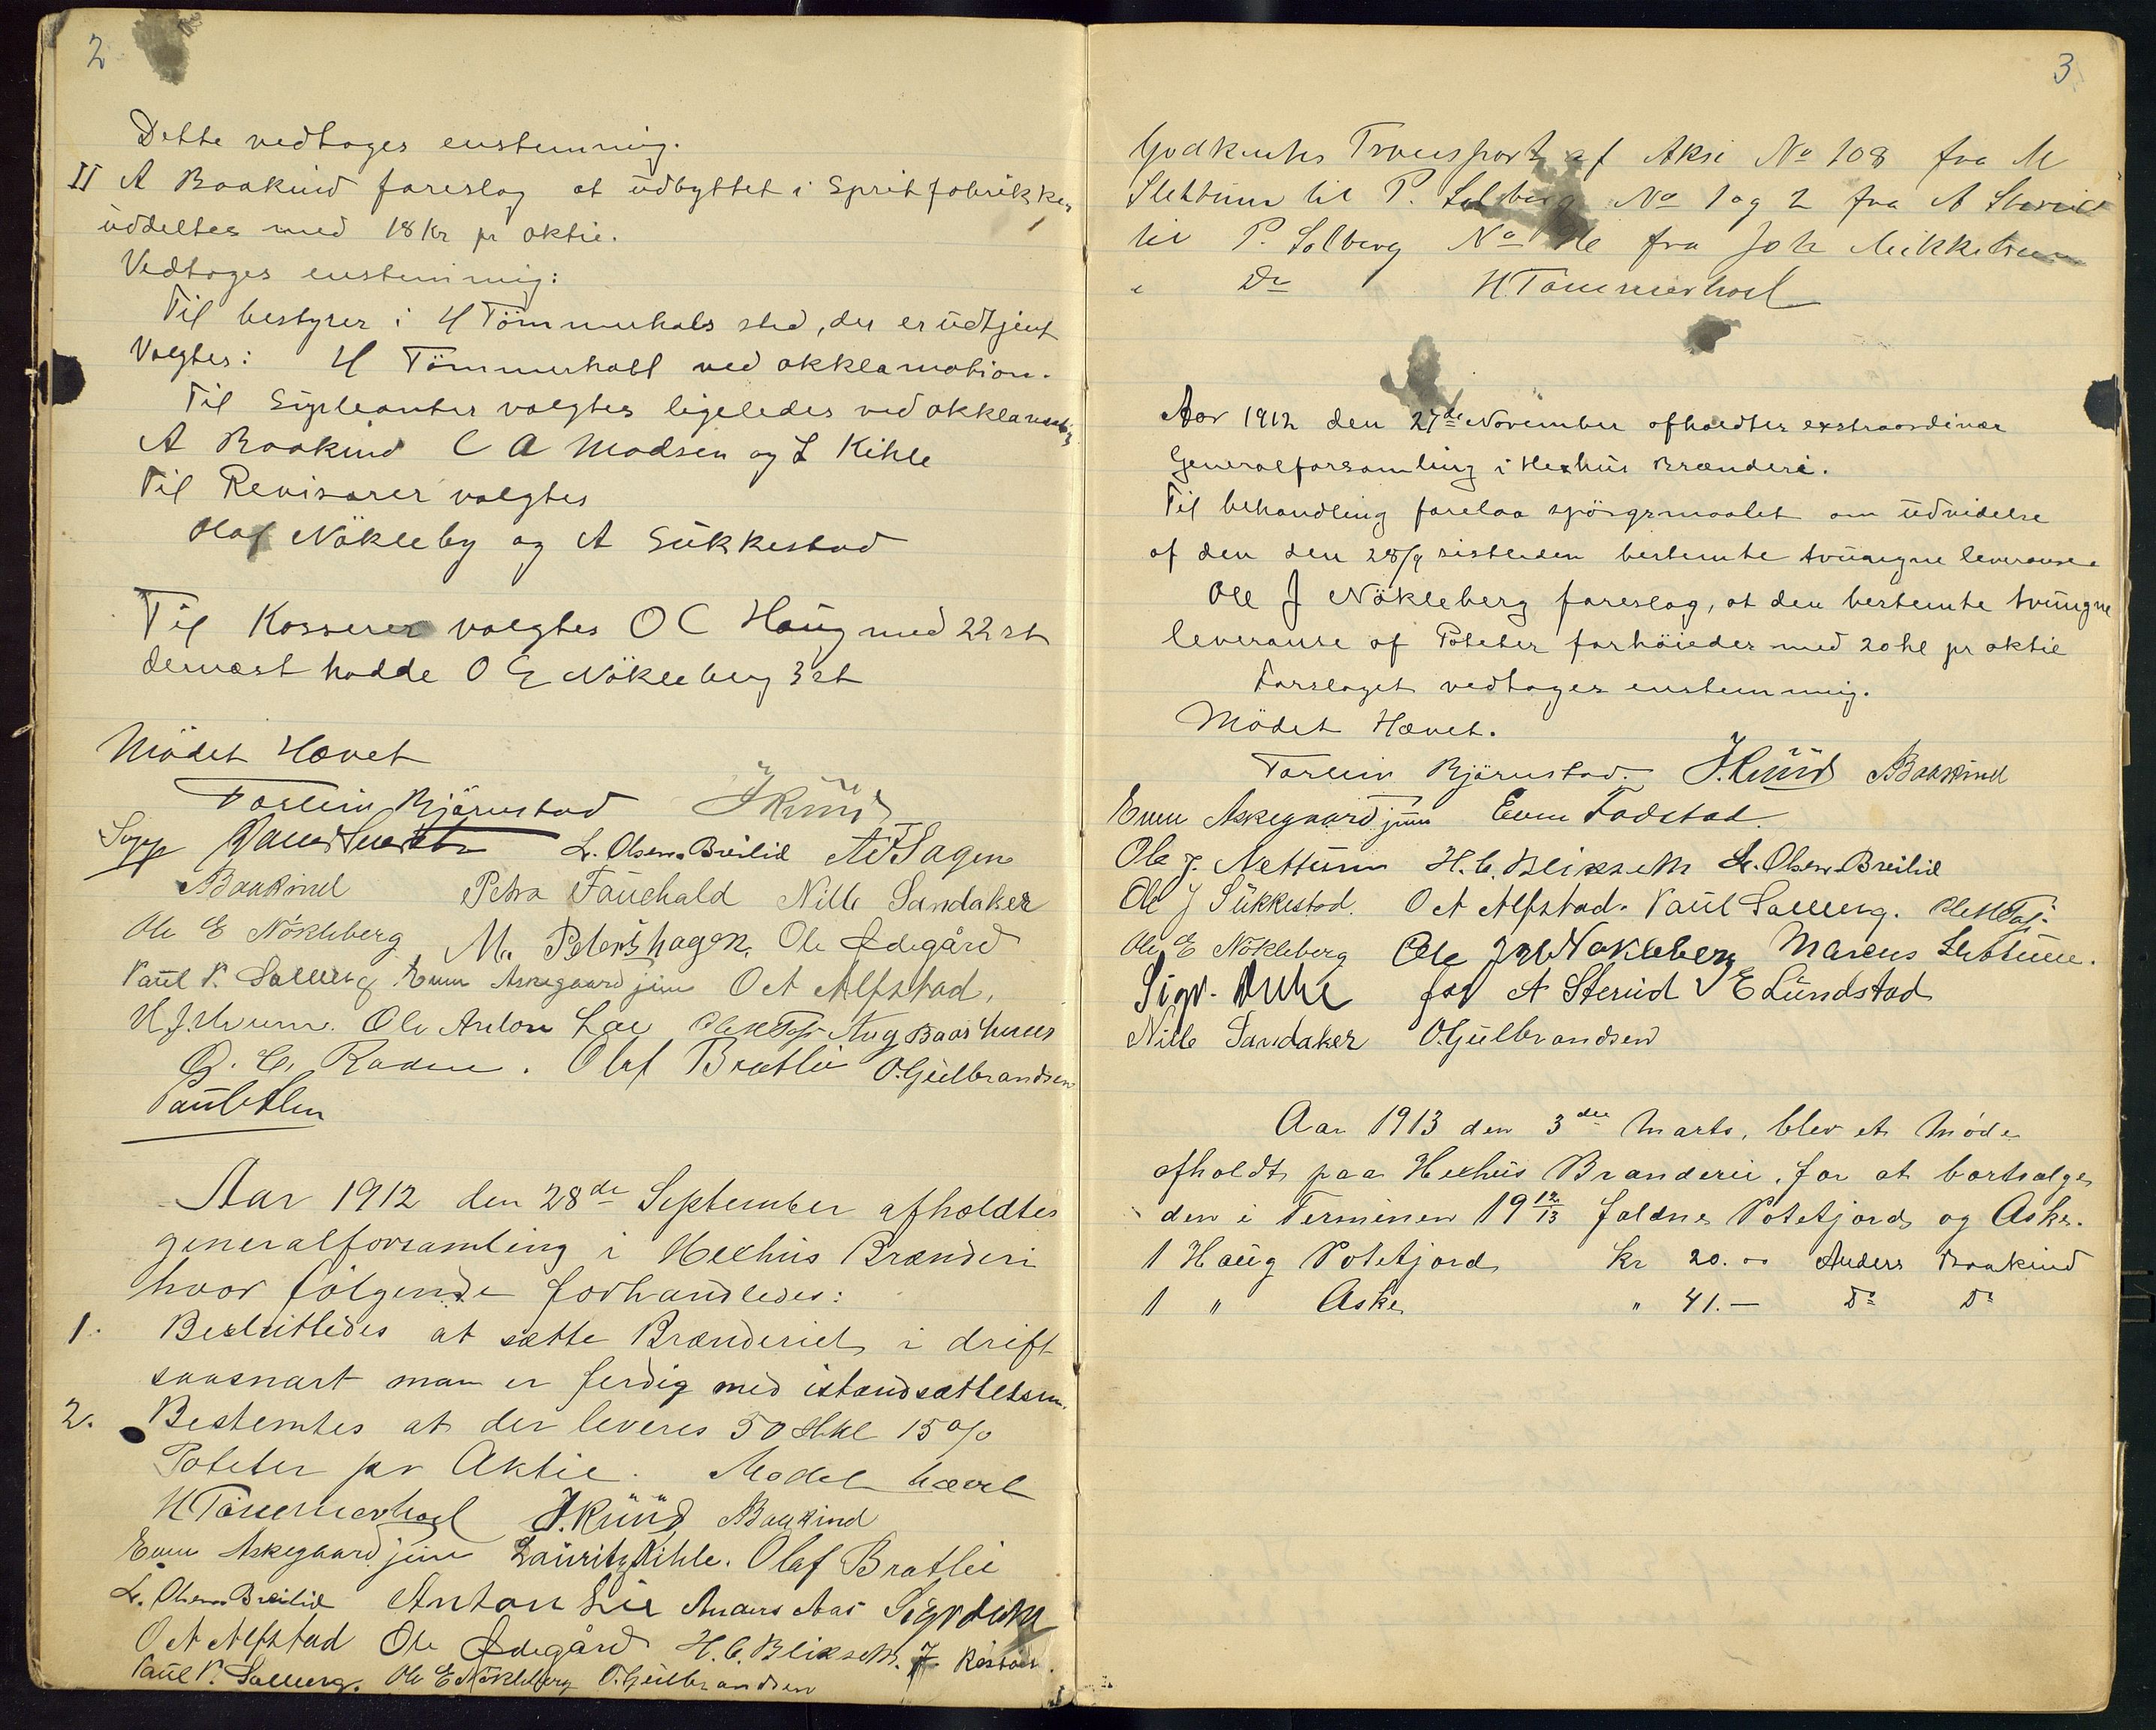 2
Dette vedtoges enstemmig.
II A Baakind foreslog at udbyttet i Spritfabrikken
uddeltes med 18 Kr pr aktie.
Vedtoges enstemmig:
Til bestyrer i H Tömmerhols sted, der er udtjent
Valgtes: H Tömmerholl ved akklamation.
Til Supleanter valgtes ligeledes ved akklamation
A Baakind C A Madsen og L Kihle
Til Revisorer valgtes
Olaf Nökleby og A Sukkestad
Til Kasserer valgtes O C Haug med 22 st
dernæst hadde O E Nökleberg 3 st
Mödet Hævet
Torlein Bjørnstad J. Ruud
L. Olsen Breilid A F Sagen
A Baakind Petra Fauchald Nille Sandaker
Ole E Nökleberg M. Petershagen. Ole Ødegård
Paul P. Solberg Even Askegaard jun O A Alfstad.
Ole Anton Lie Aug Baashuus
O. C. Raden. Olaf Bratlie O. Gulbrandsen
Aar 1912 den 28de September afholdtes
generalforsamling i Hexhus Brænderi
hvor følgende forhandledes:
1. Besluttedes at sætte Brænderiet i drift
saasnart man er ferdig med istandsættelsen.
2. Bestemtes at der leveres 50 Hkl 15%
Poteter pr Aktie. Mödet hævet
H Tömmerhol J. Ruud A Baakind
Even Askegaard jun Lauritz Kihle. Olaf Bratlie
L. Olsen Breilid Anton Lie Anders Aas Sigv.
O A Alfstad Ole Ødegård H. C. Blikseth. J.
Paul P. Solberg. Ole E Nökleberg O. Gulbrandsen
3
Godkentes Transport af Aksi No 108 fra M
Slettum til P. Solberg No 1 og 2 fra A Sterud
til P. Solberg No fra Joh Mikkelsen
" Do H Tömmerhol
Aar 1912 den 27de November afholdtes exstraordinær
Generalforsamling i Hexhus Brænderi.
Til behandling forelaa spörgsmaalet om udvidelse
af den den 28/9 sistleden bestemte tvungne leveranse.
Ole J Nökleberg foreslog, at den bestemte tvungne
leveranse af Poteter forhöiedes med 20 hl pr aktie
Forslaget vedtoges enstemmig.
Mödet Hævet.
Torlein Bjørnstad. J. Ruud A Baakind
Even Askegaard jun Even Fodstad.
Ole J. Nettum H. C. Blikseth L. Olsen Breilid
Ole J Sukkestad. O A Alfstad. Paul Solberg.
Ole E Nökleberg Ole J Nökleberg Marcus Slettum.
Sigv. for A Sterud E Lundstad
Nille Sandaker O. Gulbrandsen
Aar 1913 den 3die Marts, blev et Möde
afholdt paa Hexhus Brænderie, for at bortsælge
den i Terminen 19 12/13 faldne Potetjord og Aske.
1 Haug Potetjord kr 20.00 Anders Baakind
1 " Aske " 41.— Do Do